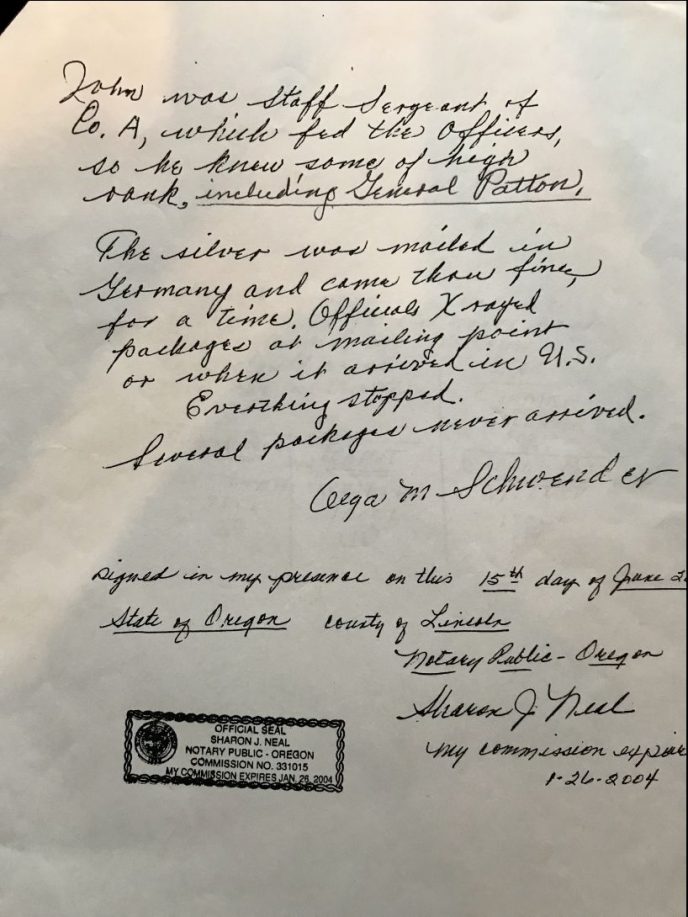 John was Staff Sergeant of
Co. A, which fed the Officers,
so he knew some of high
rank, including General Patton.
The silver was mailed in
Germany and came thru fine,
for a time. Officials X rayed
packages at mailing point
or when it arrived in U.S.
Everthing stopped.
Several packages never arrived.
M Schwender
signed in my presence on this 15th day of June
State of Oregon county of Lincoln
Notary Public - Oregon
Sharon J. Neal
my commission expire
1-26-2004
OFFICIAL SEAL
SHARON J. NEAL
NOTARY PUBLIC - OREGON
COMMISSION NO. 331015
MY COMMISSION EXPIRES JAN. 26, 2004